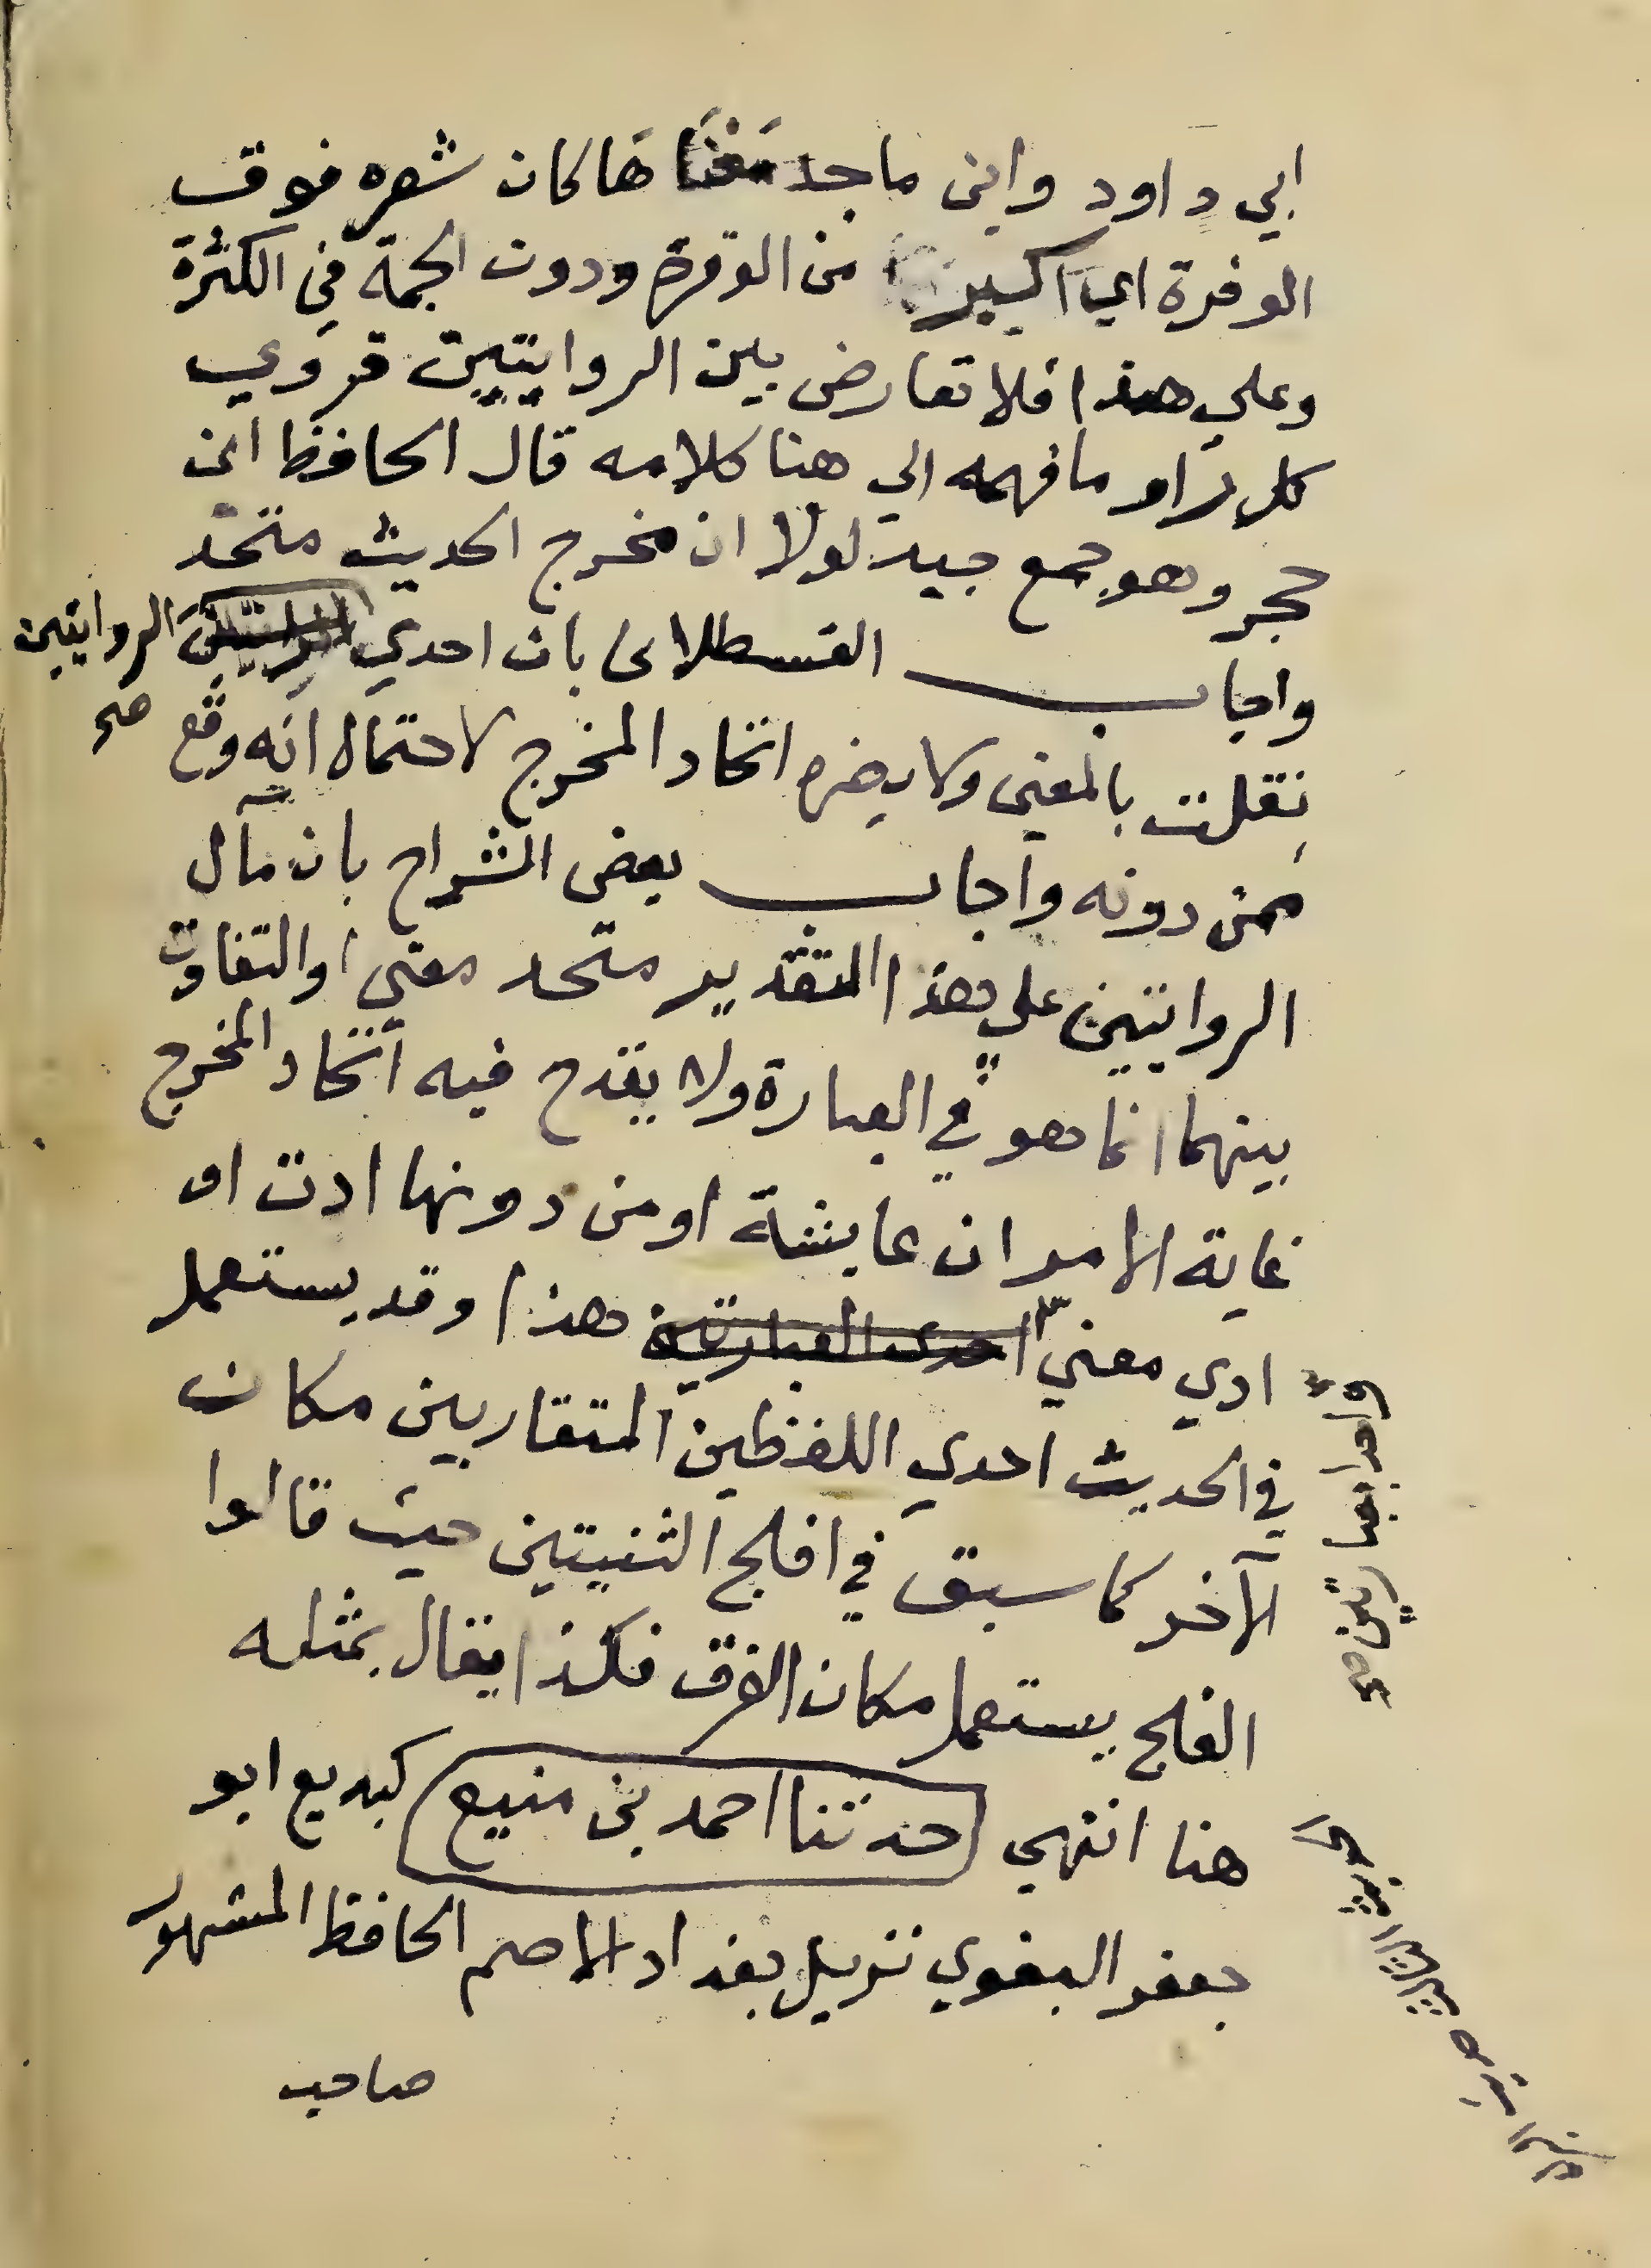 ابي داود وابن ماجد مَعْنَا هَا كان شعره فوق
الوفرة اي اكبر من الوفرة ودون الجمة في الكثرة
وعلي هذا فلا تعارض بين الروايتين فروي
كل راو ما فهمه الي هنا كلامه قال الحافظ ابن
حجر وهو جمع جيد لولا ان مخرج الحديث متحد
واجاب القسطلانى بان احدي الروايتين
صح
نقلت بالمعني ولا يضره اتحاد المخرج لاحتمال انه وقع
ممن دونه واجاب بعض الشراح بان مآل
الروايتين علي هذا التقدير متحد معني والتفاوت
بينهما انما هو في العبارة ولا يقدح فيه اتحاد المخرج
غاية الامر ان عايشة او من دونها ادت او
ادي معني احدى العبارتين هذا وقد يستعمل
في الحديث احدي اللفظين المتقاربين مكان
الآخر كما سبق في افلج الثنيتين حيث قالوا
الفلج يستعمل مكان الفرق فكذا يقال بمثله
هنا انتهي حدثنا احمد بن منيع كبديع ابو
جعفر البغوي نزيل بغداد الاصم الحافظ المشهور
صاحب
واحدا بعبارتين صح